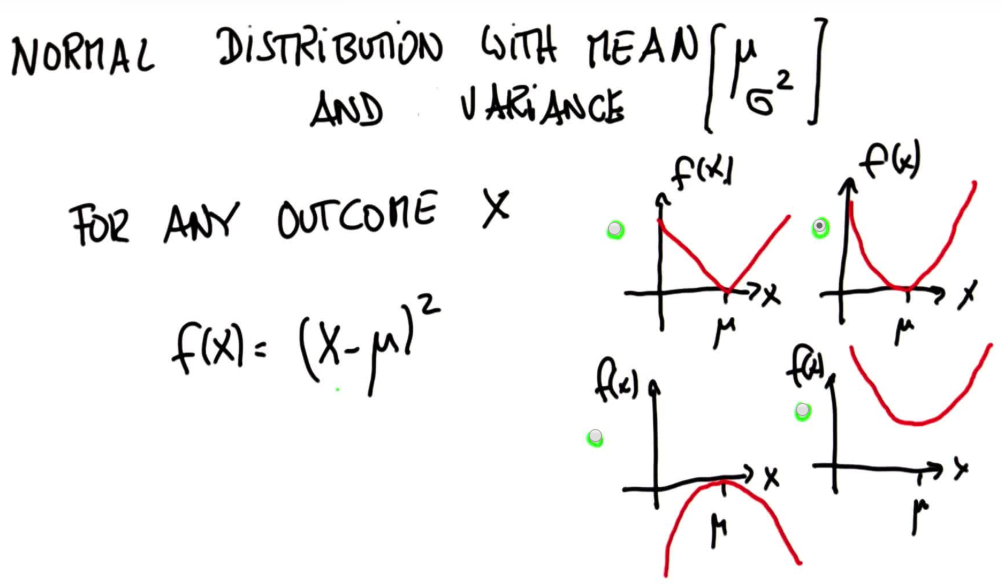 NORMAL DISTRIBUTION WITH MEAN [μ
AND VARIANCE σ²]
FOR ANY OUTCOME X
f(x) = (x-μ)²
f(x)
x
μ
f(x)
x
μ
f(x)
x
μ
f(x)
x
μ